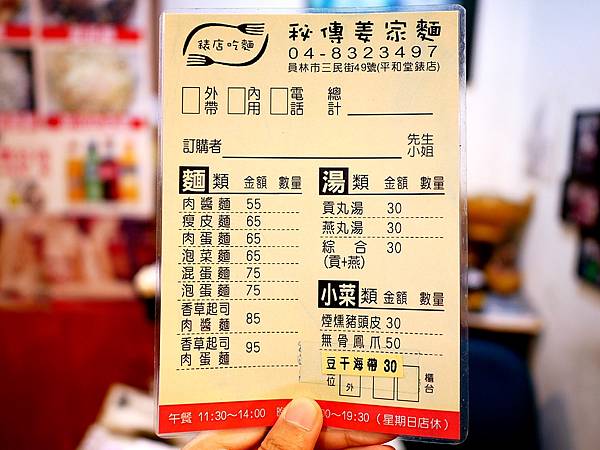 錶店吃麵
秘傳姜家麵
04-8323497
員林市三民街49號(平和堂錶店)
外帶 內用 電話 總計
訂購者 先生 小姐
麵類 金額 數量
肉醬麵 55
瘦皮麵 65
肉蛋麵 65
泡菜麵 65
混蛋麵 75
泡蛋麵 75
香草起司肉醬麵 85
香草起司肉蛋麵 95
湯類 金額 數量
貢丸湯 30
燕丸湯 30
綜合(貢+燕) 30
小菜類 金額 數量
煙燻豬頭皮 30
無骨鳳爪 50
豆干海帶 30
位 外 櫃台
午餐 11:30～14:00
00～19:30 (星期日店休)